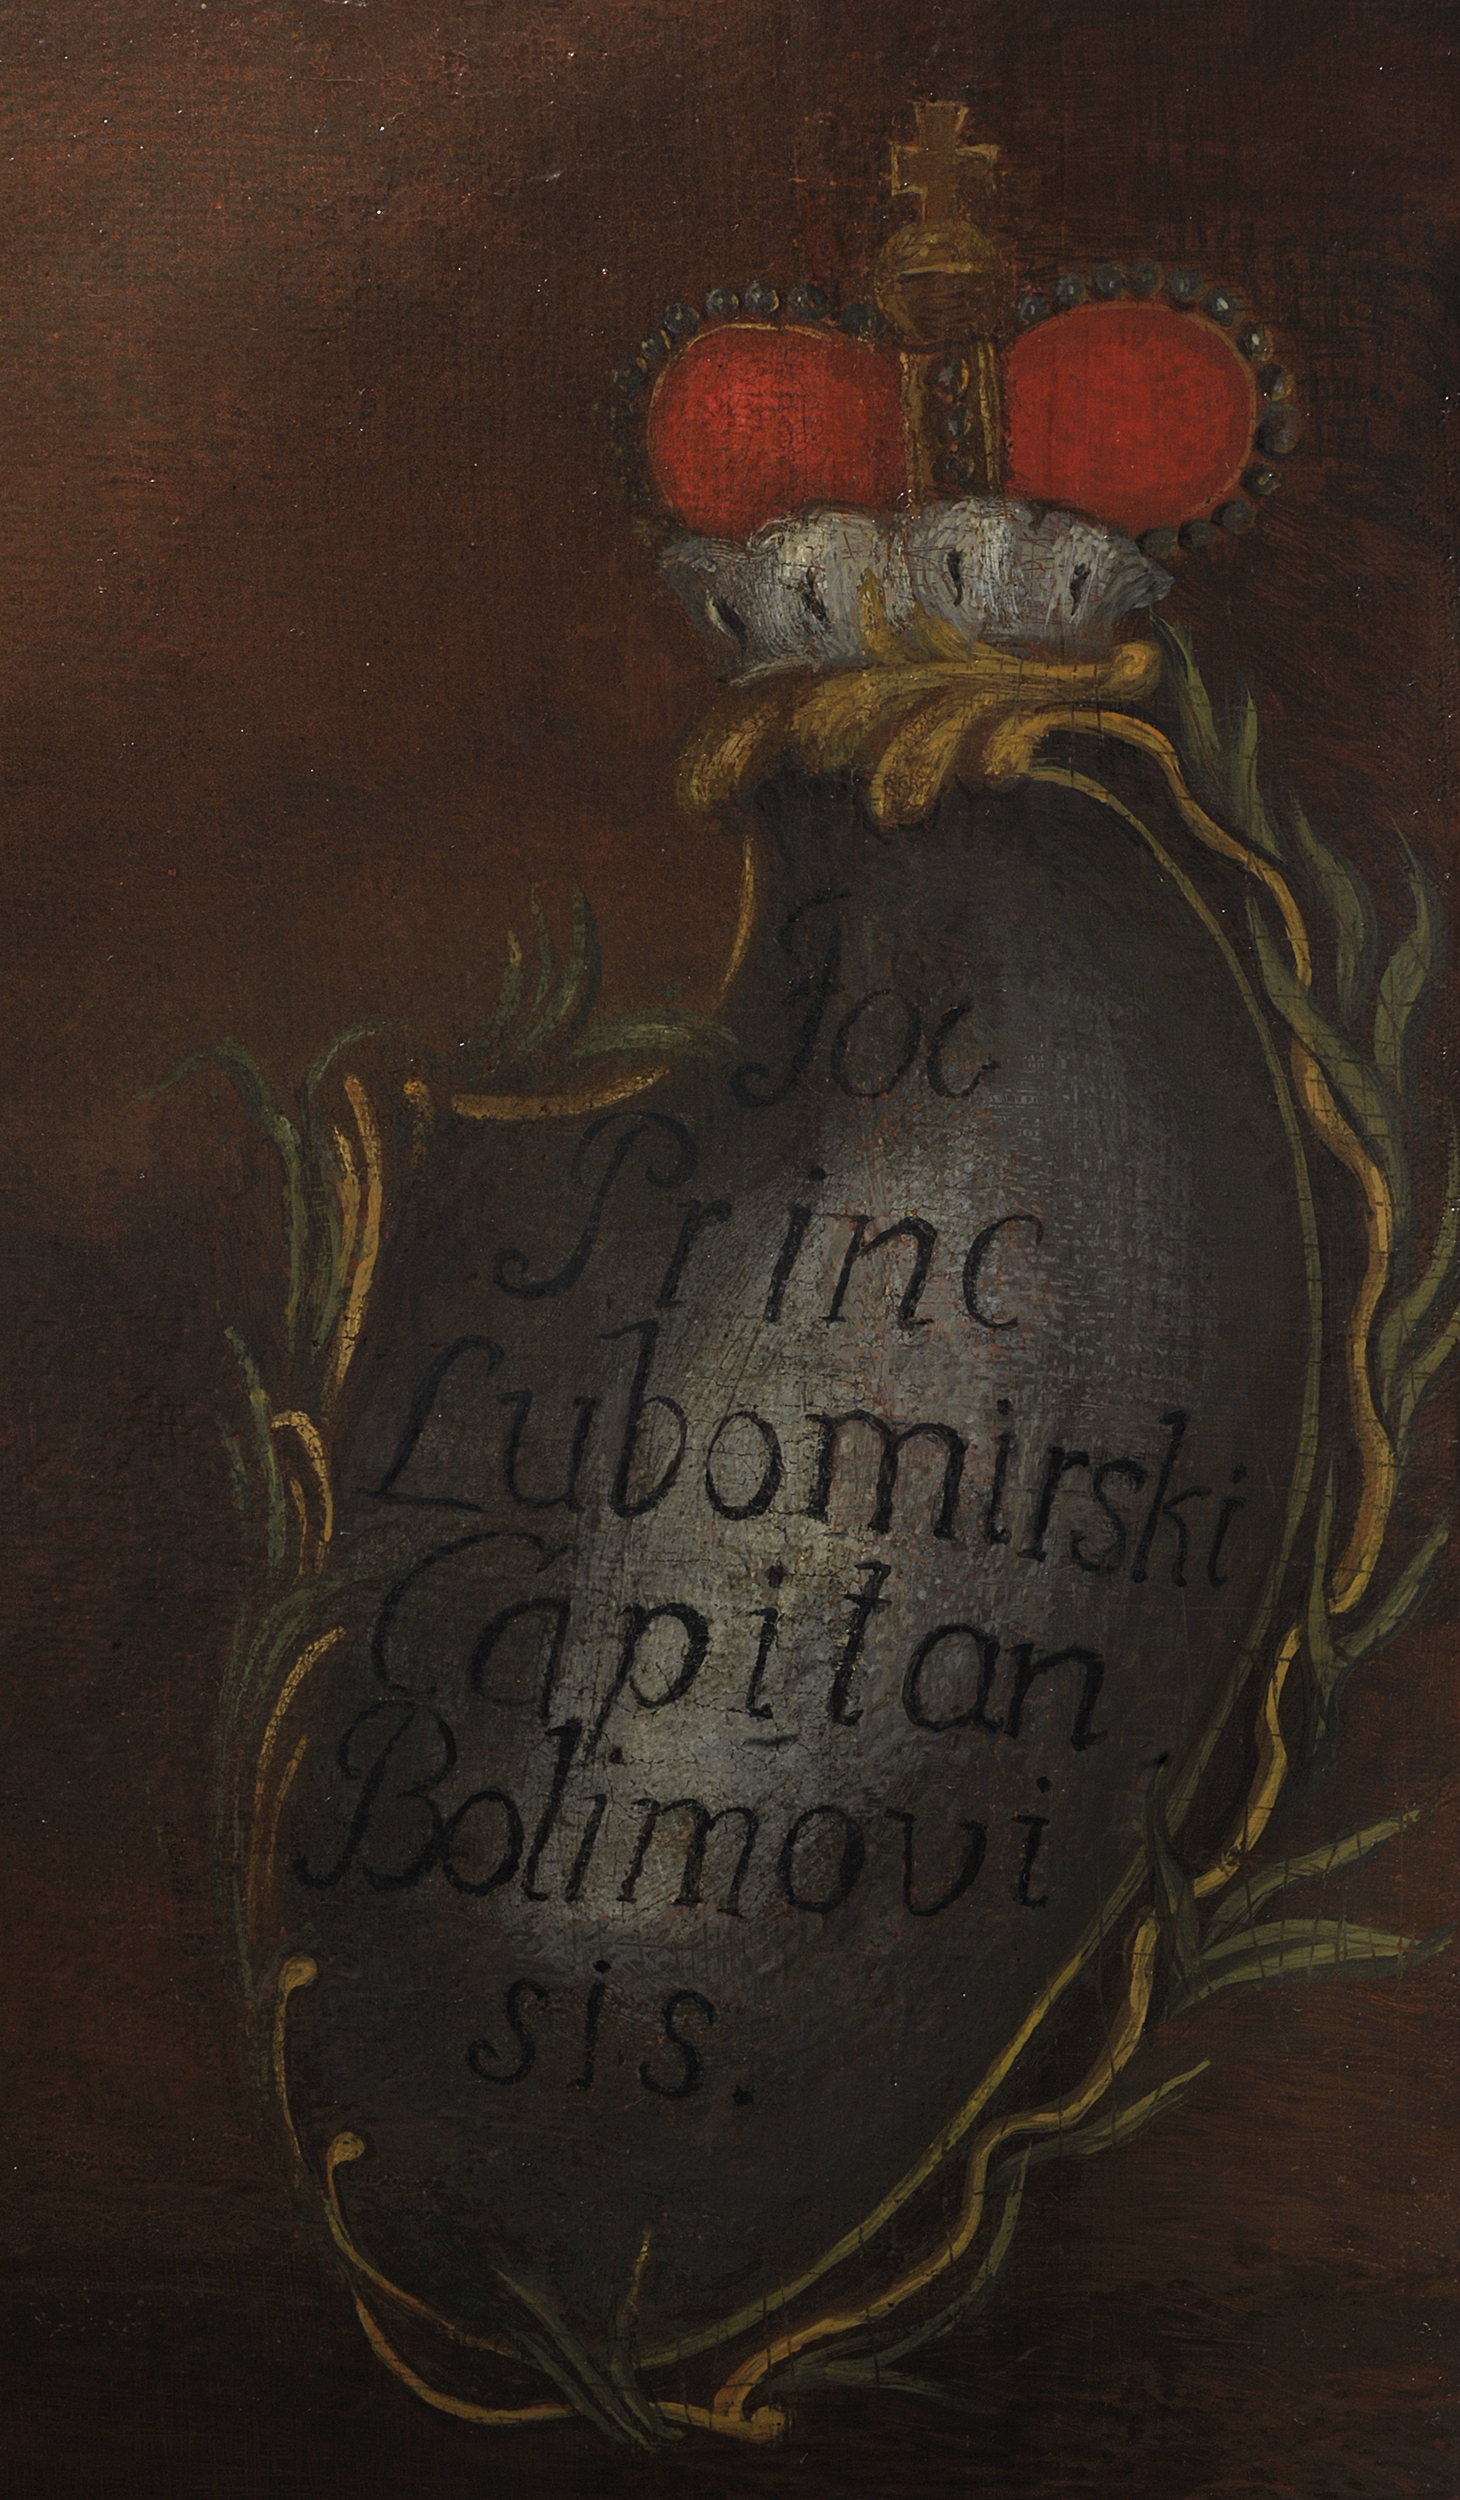 Joc
Princ
Lubomirski
Capitan
Bolimovi
sis.